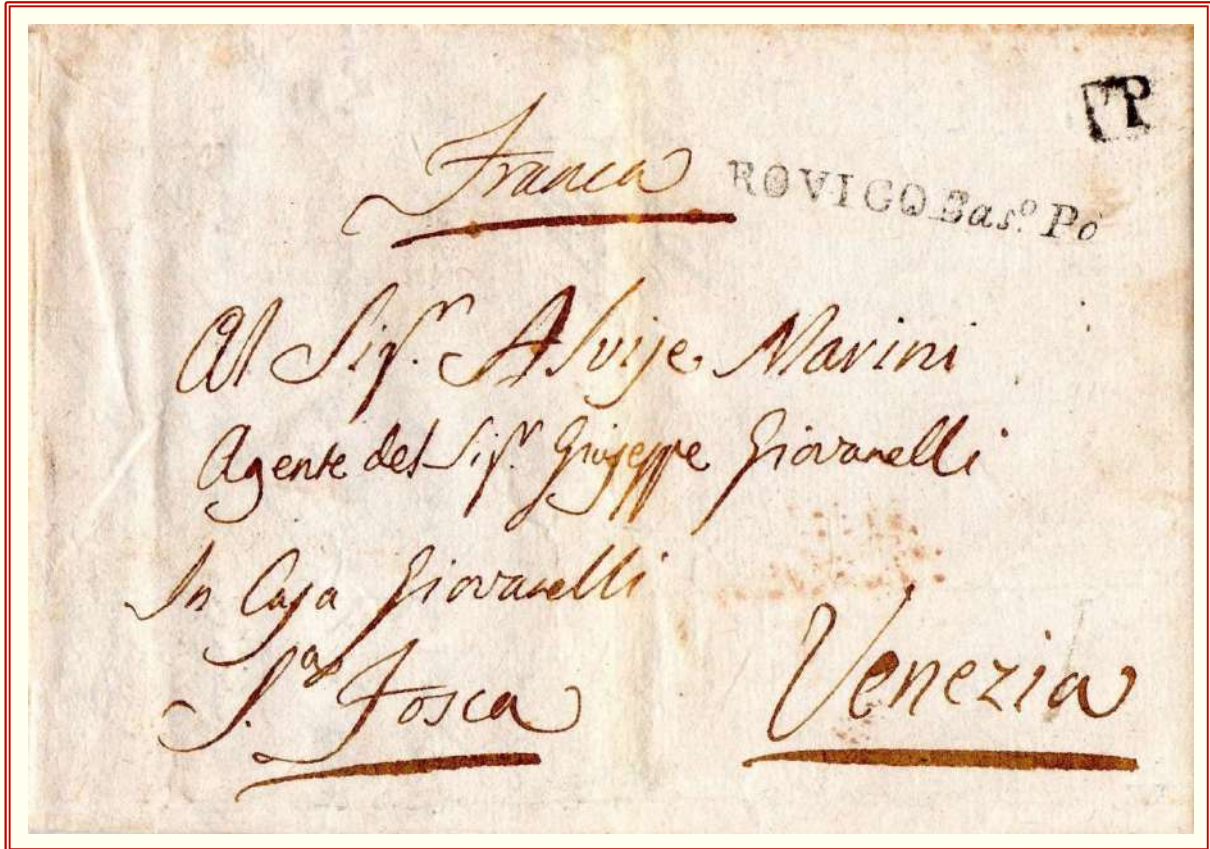 P
Franca ROVIGO Bas.º Po
Al Sigʳ. Alvije Marini
Agente del Sigʳ. Giuseppe Giovanelli
In Casa Giovanelli
S.ᵗᵃ Fosca Venezia